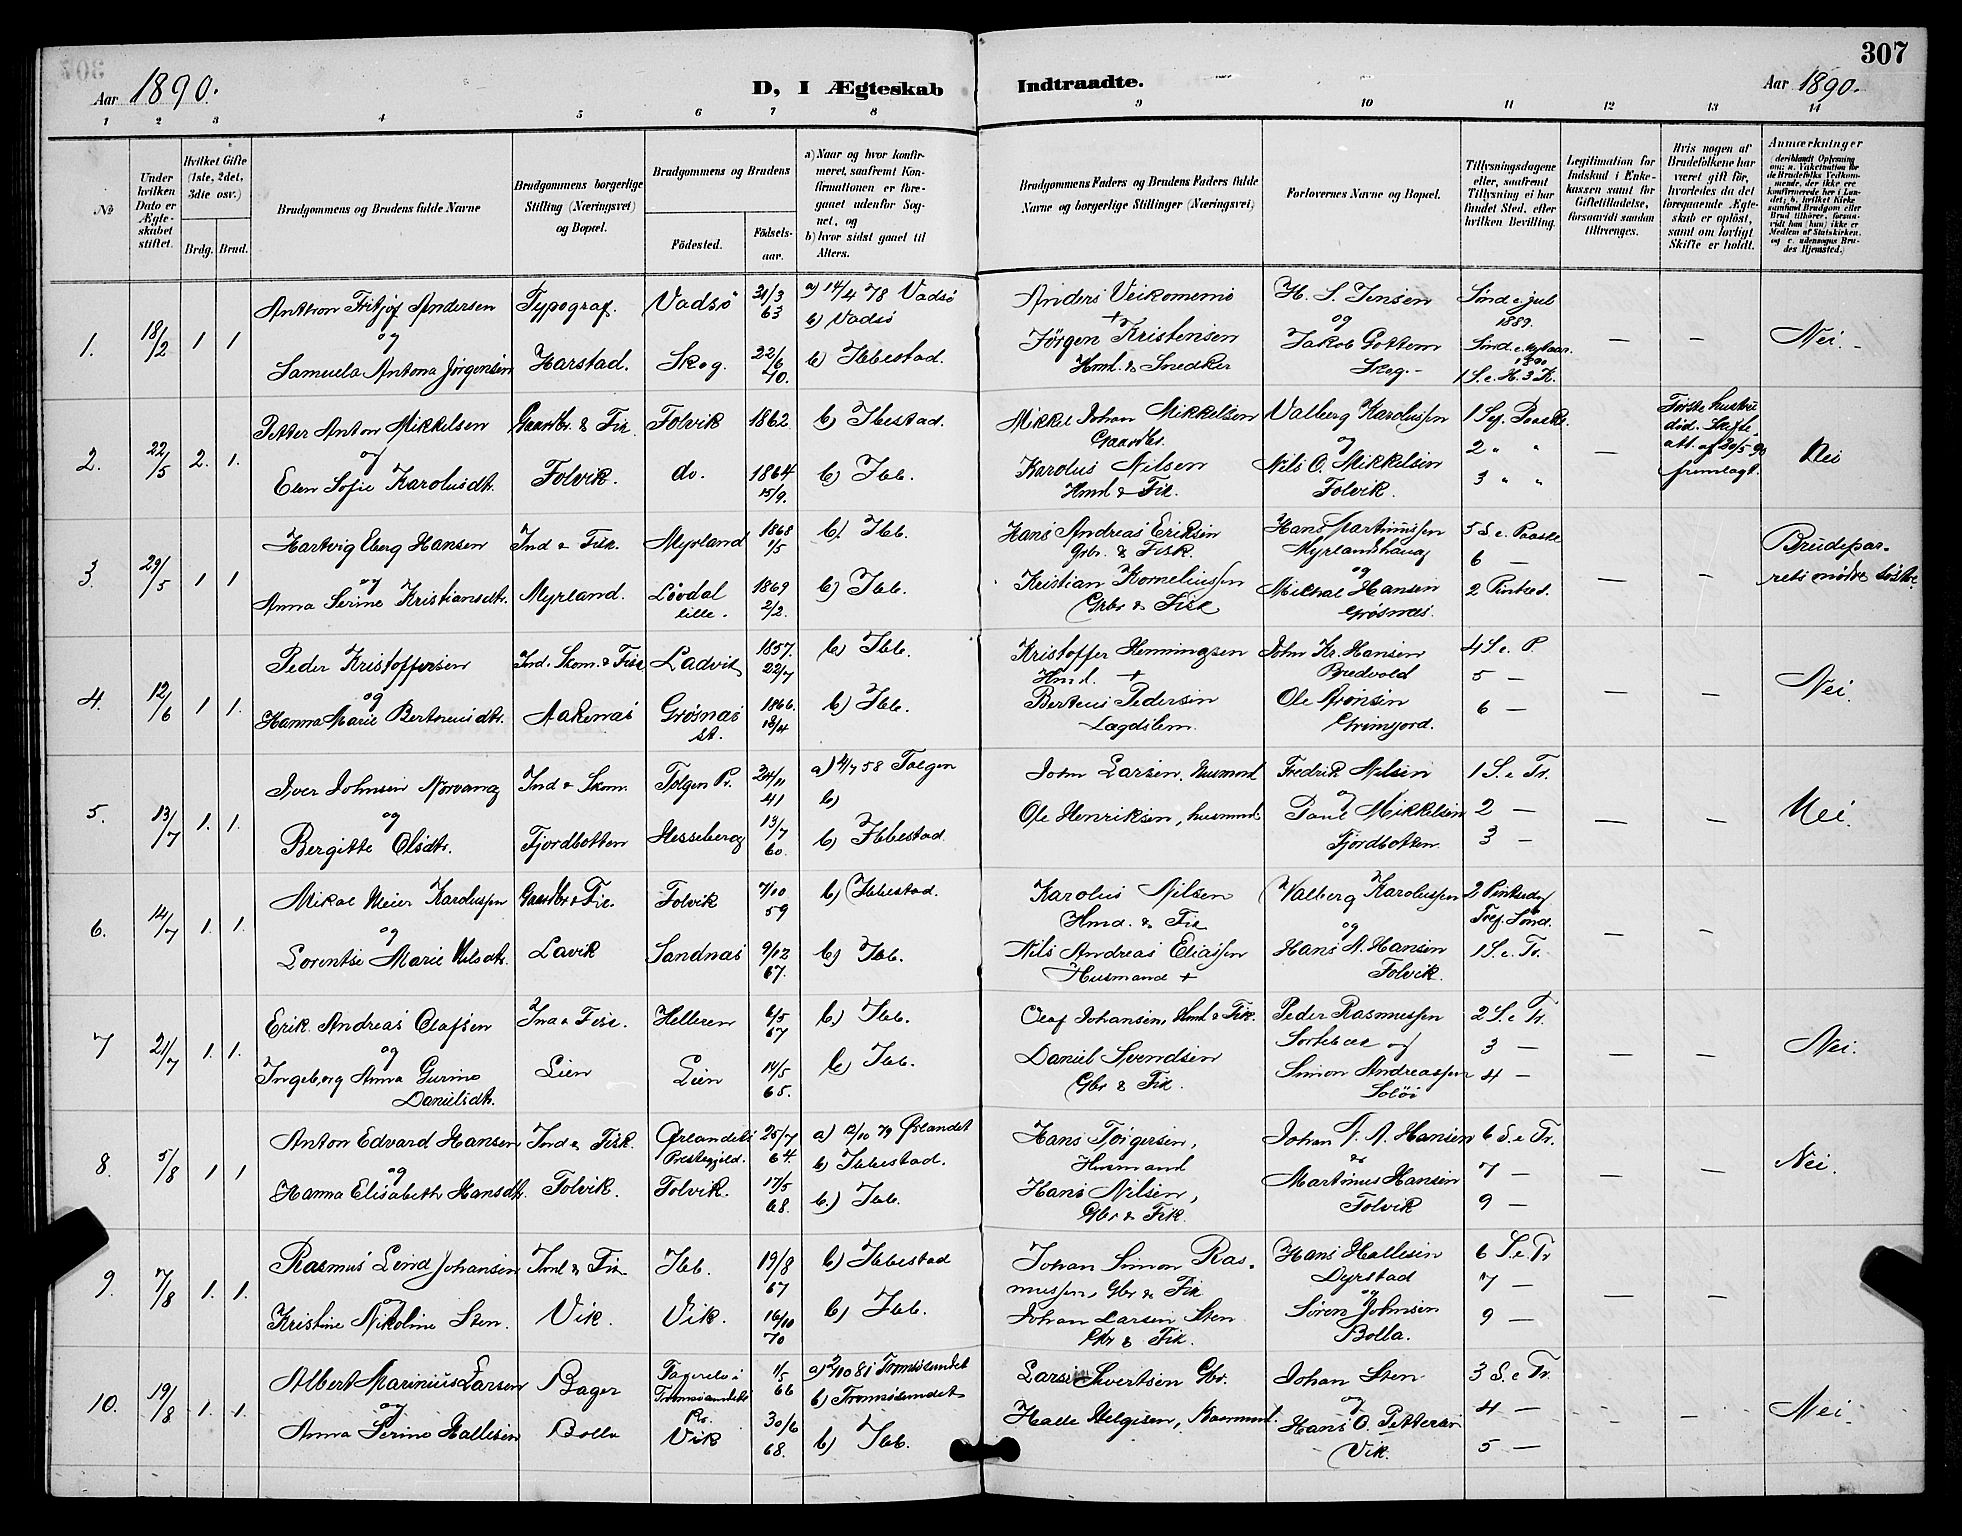 307
Aar 1890.
D, I Ægteskab Indtraadte.
Aar 1890.
1 2 3 4 5 6 7 8 9 10 11 12 13 14
№
Under hvilken Dato er Ægteskabet stiftet.
Hvilket Gifte (1ste, 2det, 3die osv.)
Brdg. Brud.
Brudgommens og Brudens fulde Navne
Brudgommens borgerlige Stilling (Næringsvei) og Bopæl.
Brudgommens og Brudens
Födested.
Födsels-aar.
a) Naar og hvor konfirmeret, saafremt Konfirmationen er foregaaet udenfor Sognet, og
b) hvor sidst gaaet til Alters.
Brudgommens Faders og Brudens Faders fulde Navne og borgerlige Stillinger (Næringsvei)
Forlovernes Navne og Bopæl.
Tillysningsdagene eller, saafremt Tillysning ei har fundet Sted, efter hvilken Bevilling.
Legitimation for Indskud i Enkekassen samt for Giftetilladelse, forsaavidt saadan tiltrænges.
Hvis nogen af Brudefolkene har været gift för, hvorledes da det foregaaende Ægteskab er oplöst, samt om lovligt Skifte er holdt.
Anmærkninger (deriblandt Oplysning om: a. Vaksination for de Brudefolks Vedkommende, der ikke ere konfirmerede her i Landet; b. hvilket Kirkesamfund Brudgom eller Brud tilhörer, forsaavidt han (hun) ikke er Medlem af Statskirken, og c. udensogns Brudes Hjemsted.)
1. 18/2 1 1
Anthon Fritjof Andersen Typograf. Vadsö 31/3 63 a) 14/4 78 Vadsö b) Vadsö
og
Samuela Antona Jörgensen Harstad. Skog. 22/6 70. b) Ibbestad.
Anders Veikomemo +
Jørgen Kristensen
Hmd. & Snedker
H. S. Jensen
og
Jakob Gottem
Skog. -
Sönd e. jul 1889.
Sönd. e. Nytaar. 1890
1 S. e. H. 3 K.
— — Nei. -
2. 22/5 2. 1.
Petter Anton Mikkelsen Gaardbr. & Fis. Folvik 1862 b) Ibestad.
og
Elen Sofie Karolusdt. Folvik. do. 1864 15/9. b) Ibb.
Mikkel Johan Mikkelsen
Gaardbr.
Karolus Nilsen
Hmd & Fis.
Valberg Karolussen
og
Nils O. Mikkelsen
Folvik.
1 Sg. Paaske
2 " "
3 " "
— Første hustru död. Skifte att. af 20/5 90 fremlagt. Nei
3. 29/5 1 1
Hartvig Eberg Hansen Ind & Fisk. Myrland 1868 1/5 b). Ibb.
og
Anna Serine Kristiansdt. Myrland. Lövdal lille. 1869 2/2. b) Ibb.
Hans Andreas Eriksen
Grbr. & Fisk.
Kristian Korneliussen
Grbr & Fisk
Hans Martinussen
Myrlandshaug
og
Mikal Hansen
Grösnæs.
5 S. e. Paaske
6 —
2 Pintsed.
— — Brudepar-
rets mødre søstre
4. 12/6 1 1.
Peder Kristoffersen Ind. Skom. & Fisk Ladvik 1857. 22/7 b) Ibb.
og
Hanna Marie Berteusdt. Aakenæs Grösnæs st. 1866. 18/4 b) Ibb.
Kristoffer Henningsen
Hmd. +
Berteus Pedersen
Lægdslem.
John Kr. Hansen
Bredvold
Ole Arönsen
Grimjord.
4 S. e. P
5 —
6 —
— — Nei.
5. 13/7 1. 1.
Iver Johnsen Norvang Ind & Skom. Tolgen Pr. 24/11 41 a) 4/7 58 Tolgen b)
og
Bergitte Olsdt. Fjordbotten Hesseberg 13/7 60. b) Ibbestad.
John Larsen. Husmnd.
Ole Henriksen, husmnd.
Fredrik Nilsen
og
Paul Mikkelsen
Fjordbotten
1 S. e Tr.
2 —
3 —
— — Nei.
6. 14/7 1. 1.
Mikal Meier Karolussen Gaardbr & Fis. Folvik 7/10 59 b) Ibbestad.
og
Lorentse Marie Nilsdt. Lavik Sandnæs 9/12 67. b) Ibb.
Karolus Nilsen
Hmd. & Fis
Nils Andreas Eliassen
Husmand +
Valberg Karolussen
og
Hans A. Hansen
Folvik.
2 Pintsedag
Tref. Sönd.
1 S. e. Tr.
— —
7 21/7 1. 1.
Erik Andreas Olafsen Ind & Fisk. Helleren 6/5 67 b.) Ibb.
og
Ingeborg Anna Gurine Danielsdt. Lien Lien 14/5 65. b) Ibb.
Olaf Johansen, Hmd. & Fisk.
Daniel Svendsen
Gbr & Fis.
Peder Rasmussen
og
Simon Andreassen
2 S. e Tr.
3 —
4 —
— — Nei.
8. 5/8 1 1
Anton Edvard Hansen Ind & Fisk. Ørlandets Prestegjeld. 25/7 64. a) 12/10 79 Ørlandet b) Ibbestad.
og
Hanna Elisabeth Hansdt. Folvik. Folvik. 17/5 68. b.) Ibb.
Hans Törgersen,
Husmand
Hans Nilsen,
Gbr & Fisk.
Johan N. A. Hansen
&
Martinus Hansen
Folvik
6 S. e Tr.
7 —
9 —
— — Nei.
9. 7/8 1. 1.
Rasmus Lind Johansen Ind & Fis Ibb. 19/8 67 b) Ibbestad
og
Kristine Nikoline Sten. Vik. Vik. 16/10 70 b) Ibb.
Johan Simon Ras-
mussen, Gbr & Fis
Johan Larsen Sten
Gbr & Fisk.
Hans Hallesen
Dyrstad
og
Sören Johnsen
Bolla.
6 S. e Tr
7 —
9 —
— —
10. 19/8 1. 1.
Albert Marinius Larsen Bager Tromsösundets Pr. 1/5 66 a) 2/10 81 Tromsösundet b) Tromsösundet
og
Anna Serine Hallesen Bolla Vik 30/6 68. b) Ibb.
Lars Sivertsen Gbr.
Halle Helgesen,
Johan Sten
og
Hans O. Pettersen
Vik.
3 S. e Tr.
4 —
5 —
— — Nei.